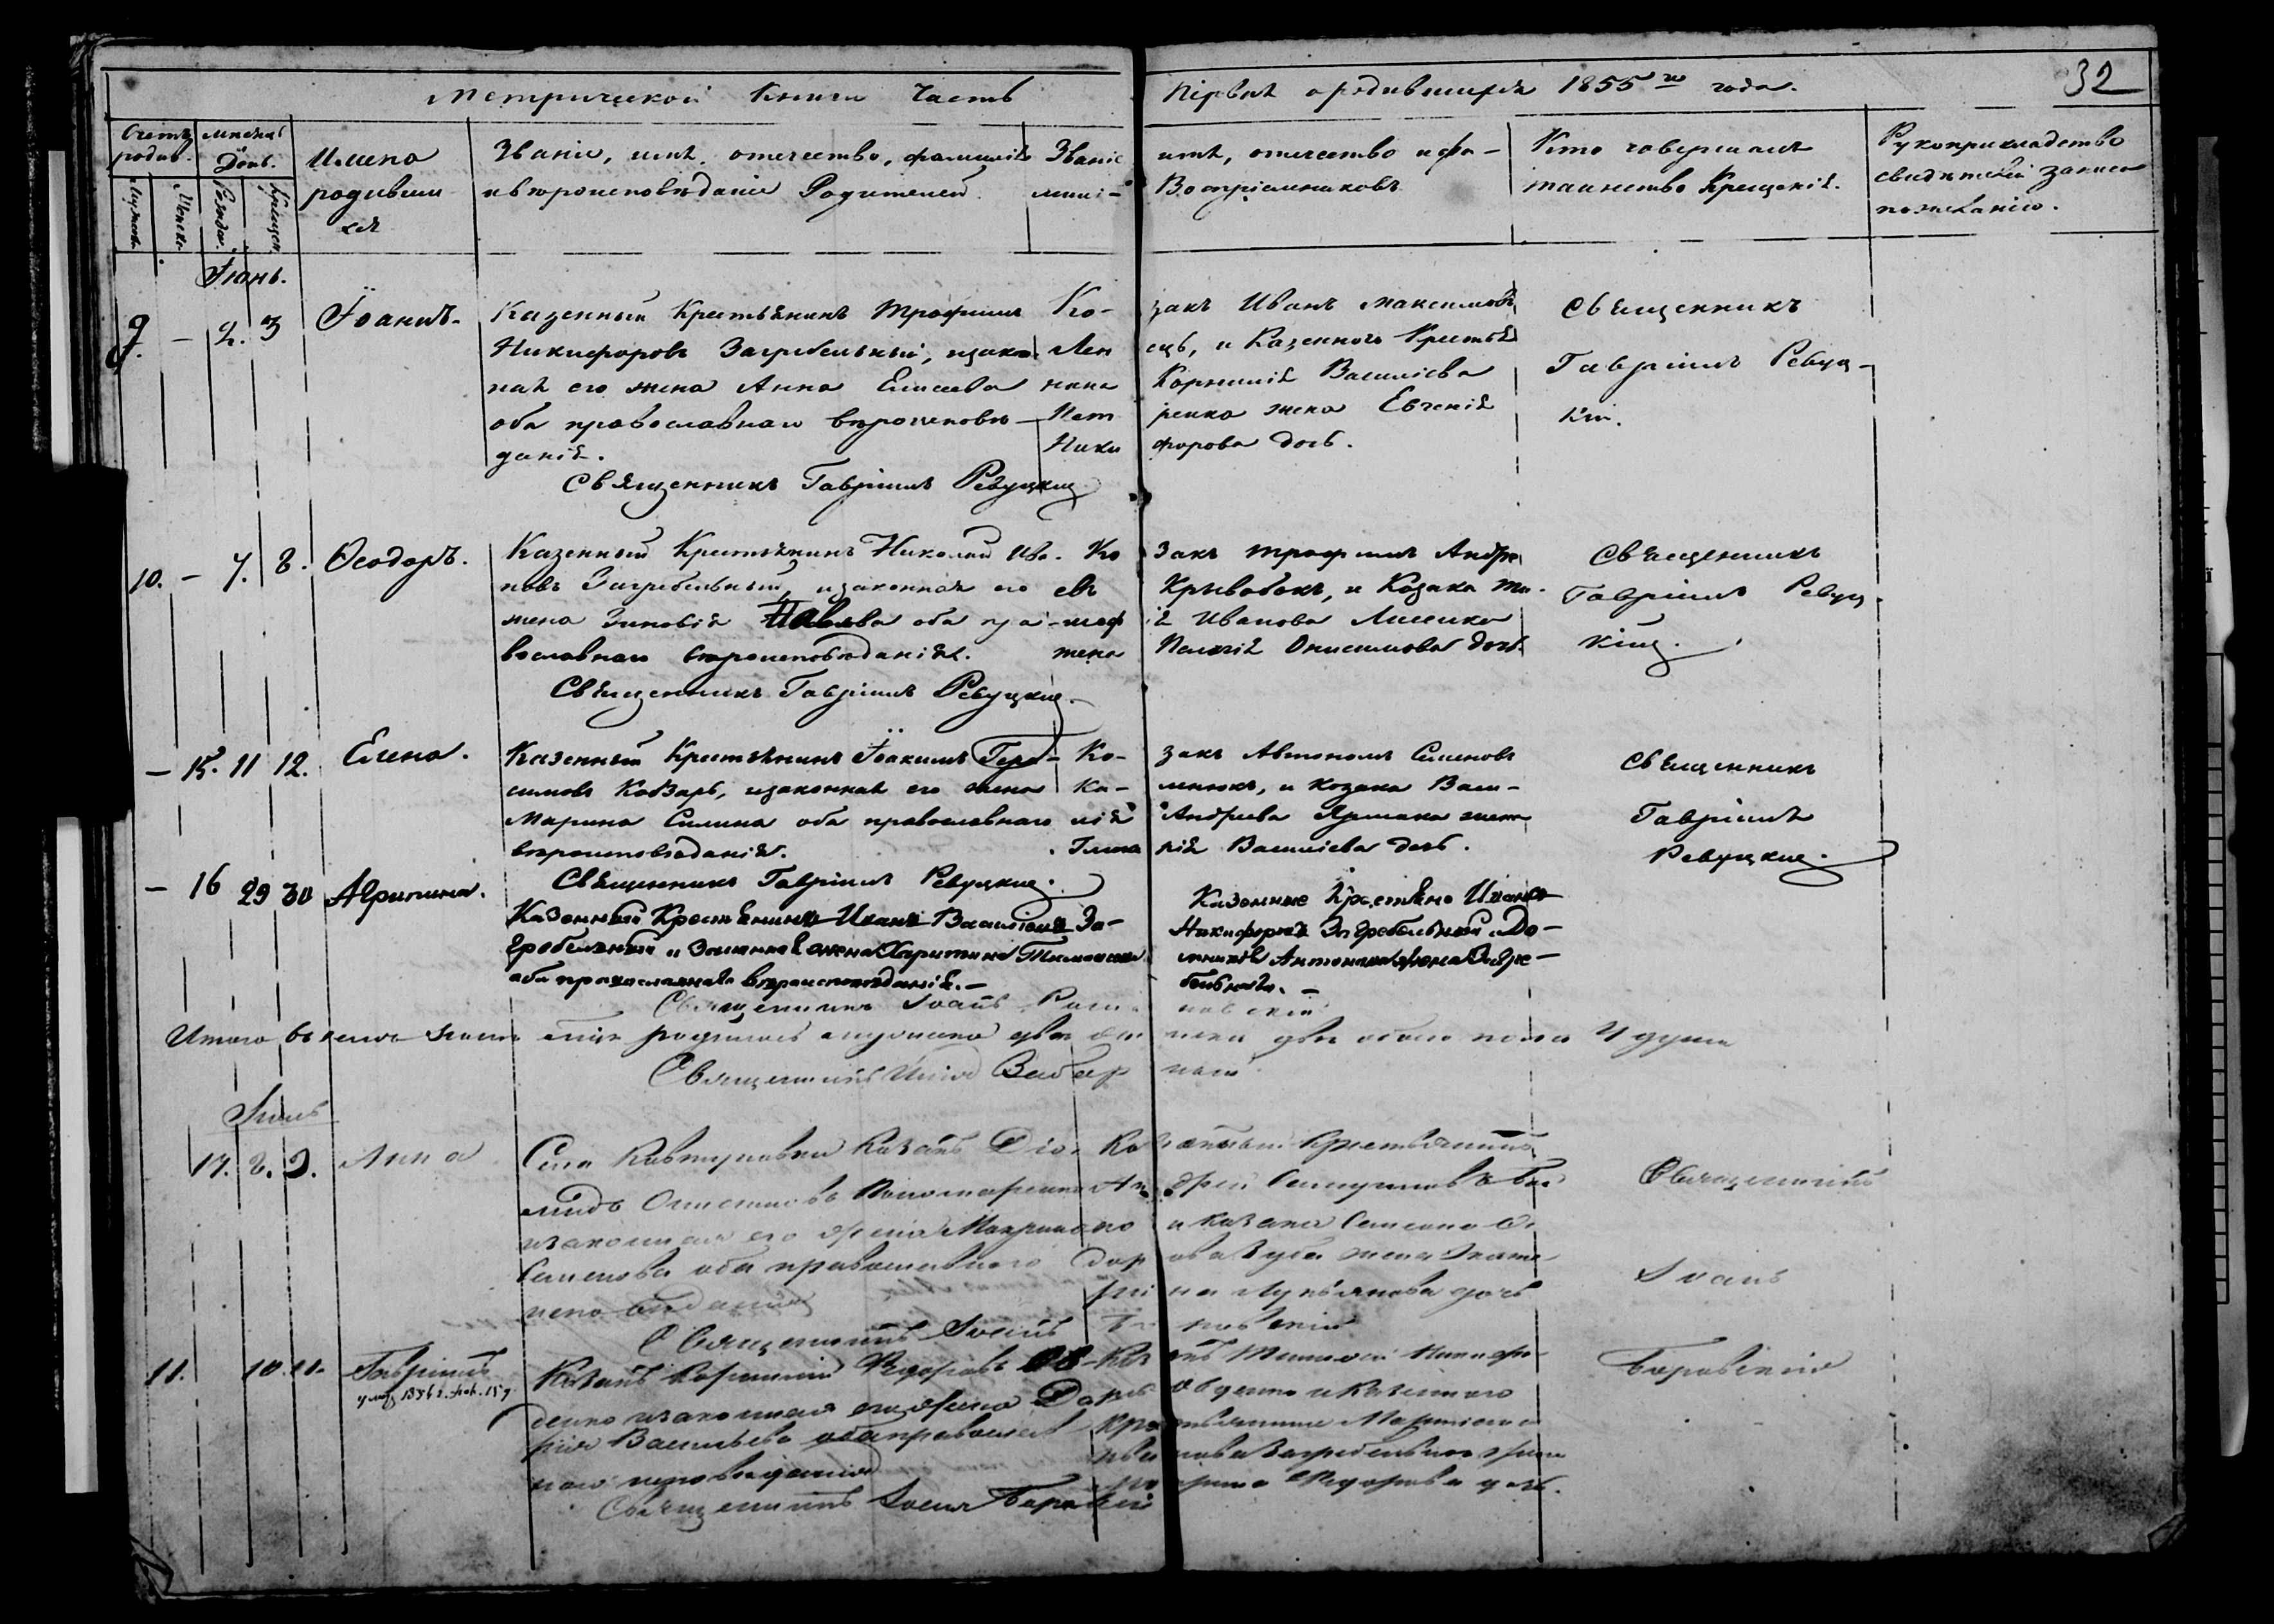 Метрической Книги Часть первая о родившихся 1855го года.
32
Счетъ родив.
Мѣсяцъ и День.
Мужеска
Женска
Рожден.
Крещен.
Имена
родивши
хся
Званіе, имя, отечество, фамилія
и вѣроисповѣданіе Родителей.
Званіе имя, отечество и фа-
милі- Воспріемниковъ
Кто совершалъ
таинство Крещенія.
Рукоприкладство
свидѣтелей записи
по желанію.
Іюнь.
9. - 2. 3
Іоаннъ.
Казенный Крестьянинъ Трофимъ
Никифоровъ Загребельный, и закон
ная его жена Анна Елисеева
оба православнаго вѣроисповѣ-
данія.
Священникъ Гавріилъ Ревуцкій
Ко- закъ Иванъ Максимовъ
Лен ецъ, и Казеннаго Крестья
нина Корнилія Василіева
Пет ренка жена Евгенія
Ники форова дочь.
Священникъ
Гавріилъ Ревуц-
кій.
10. - 7. 8.
Ѳеодоръ.
Казенный Крестьянинъ Николай Ива-
новъ Загребельный, и законная его
жена Зиновія Павлова оба пра-
вославнаго вѣроисповѣданія.
Священникъ Гавріилъ Ревуцкій.
Ко закъ Трофимъ Андре
евъ Кривобокъ, и Козака Ти-
моф ія Иванова Лисенка
жена Пелагія Онисимова дочь.
Священникъ
Гавріилъ Ревуц-
кій.
- 15. 11 12.
Елена.
Казенный Крестьянинъ Іоакимъ Гера-
симовъ Кобзарь, и законная его жена
Марина Силина оба православнаго
вѣроисповѣданія.
Священникъ Гавріилъ Ревуцкій.
Ко- закъ Автономъ Семеновъ
Ка- мнюкъ, и козака Васи-
лія Андреева Ярмака жена
Гли кія Василіева дочь.
Священникъ
Гавріилъ
Ревуцкій.
- 16 29 30
Агрипина.
Казенный Крестьянинъ Иванъ Василіевъ За-
гребельный и Законная жена Харитина Тимошева
оба православнаго вѣроисповѣданія.-
Священникъ Іоаннъ
Казенные Крестьяне Иванъ
Никифоровъ Загребельный и До-
мникія Антонова жена Загре-
бельнаго. -
Итого въ іюнѣ мѣсяцѣ родилось мужеска два жен ска два обоего пола 4 души
Священникъ
Іюль
17. 8. 9.
Анна
Села Ковтуновки Козакъ Діо-
мидъ Онисимовъ Пономаренко
и законная его жена Макрина
Семенова оба православнаго
исповѣданія
Священникъ Іоаннъ
Ка зенный Крестьянинъ
Ан дрей
и козака Семена
жена
на Лукьянова дочь
Священникъ
Іоаннъ
Боровскій
11. 10. 11.
Гавріилъ
умер. 1856 г.
Козакъ Корнилій Ѳедоровъ Ов-
денко и законная его жена Дарь
рія Васильева оба православ
наго исповѣданія
Священникъ Іоаннъ Боровскій
Коз акъ Тимофей Никифо-
ровъ Овденко и Казеннаго
Кре стьянина Мартина
Ива нова Загребельнаго жена
Ѳедорова дочь.